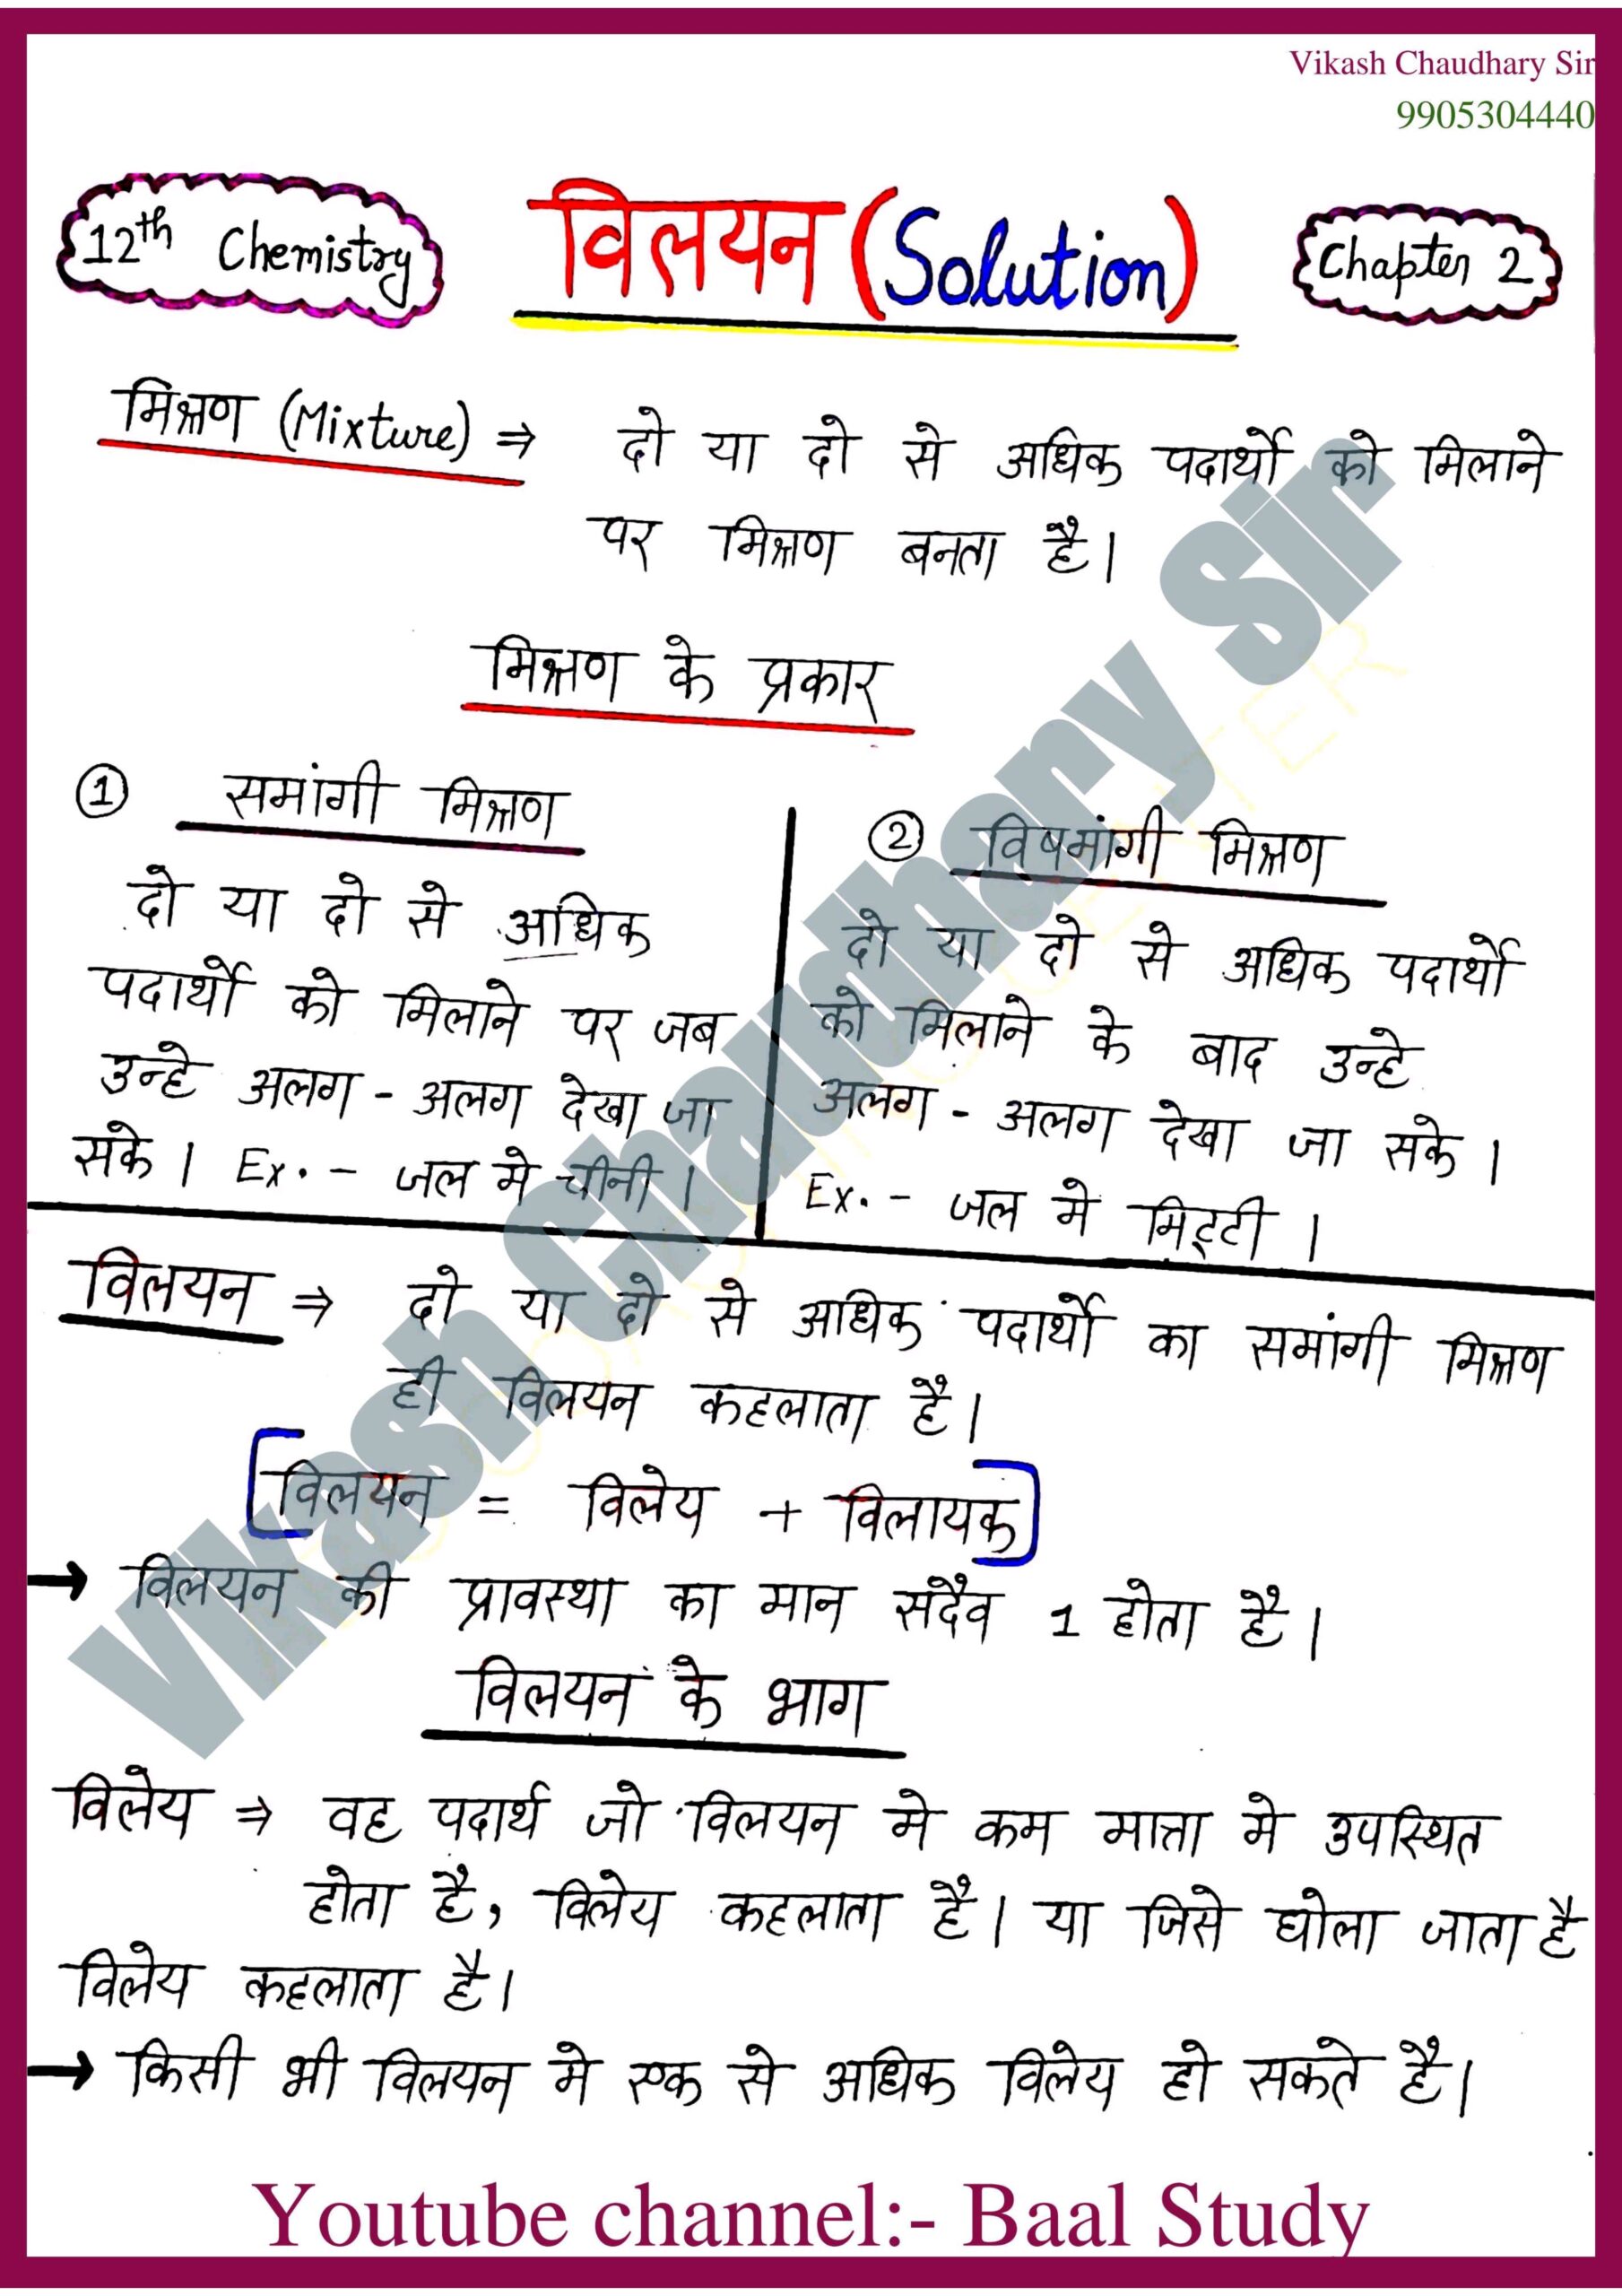 Vikash Chaudhary Sir
9905304440
12th Chemistry
विलयन (Solution)
Chapter 2
मिश्रण (Mixture) ⇒ दो या दो से अधिक पदार्थो को मिलाने
पर मिश्रण बनता है।
मिश्रण के प्रकार
① समांगी मिश्रण
दो या दो से अधिक
पदार्थो को मिलाने पर जब
उन्हे अलग - अलग देखा जा
सके। Ex. - जल मे चीनी।
② विषमांगी मिश्रण
दो या दो से अधिक पदार्थो
को मिलाने के बाद उन्हे
अलग - अलग देखा जा सके।
Ex. - जल मे मिट्टी।
विलयन ⇒ दो या दो से अधिक पदार्थो का समांगी मिश्रण
ही विलयन कहलाता है।
[विलयन = विलेय + विलायक]
→ विलयन की प्रावस्था का मान सदैव 1 होता है।
विलयन के भाग
विलेय ⇒ वह पदार्थ जो विलयन मे कम मात्रा मे उपस्थित
होता है, विलेय कहलाता है। या जिसे घोला जाता है
विलेय कहलाता है।
→ किसी भी विलयन मे एक से अधिक विलेय हो सकते है।
Vikash Chaudhary Sir
Youtube channel:- Baal Study